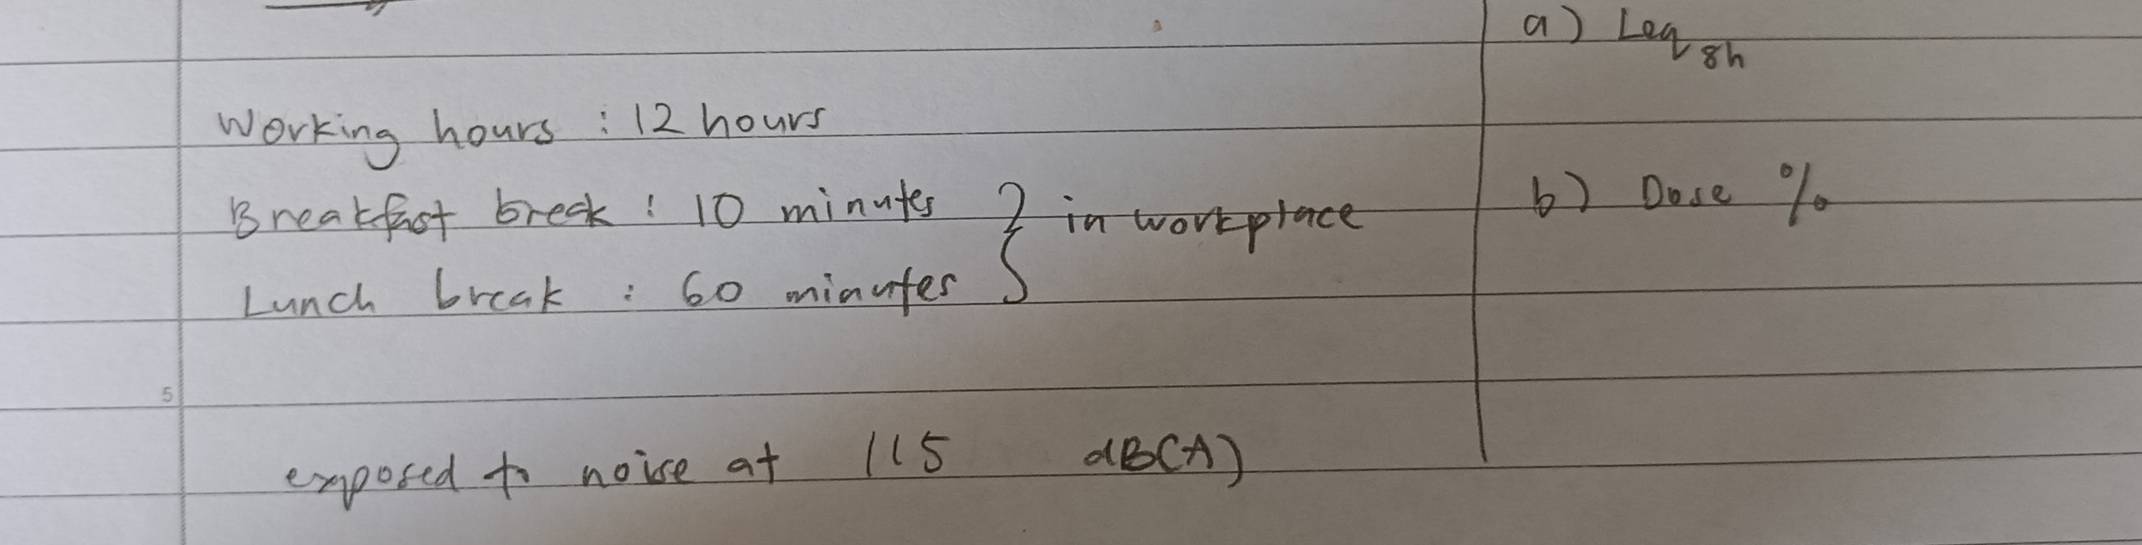 a) Leq 8h
Working hours : 12 hours
Breakfast break : 10 minutes } in workplace
b) Dose %
Lunch break : 60 minutes
5
exposed to noise at 115 dB(A)